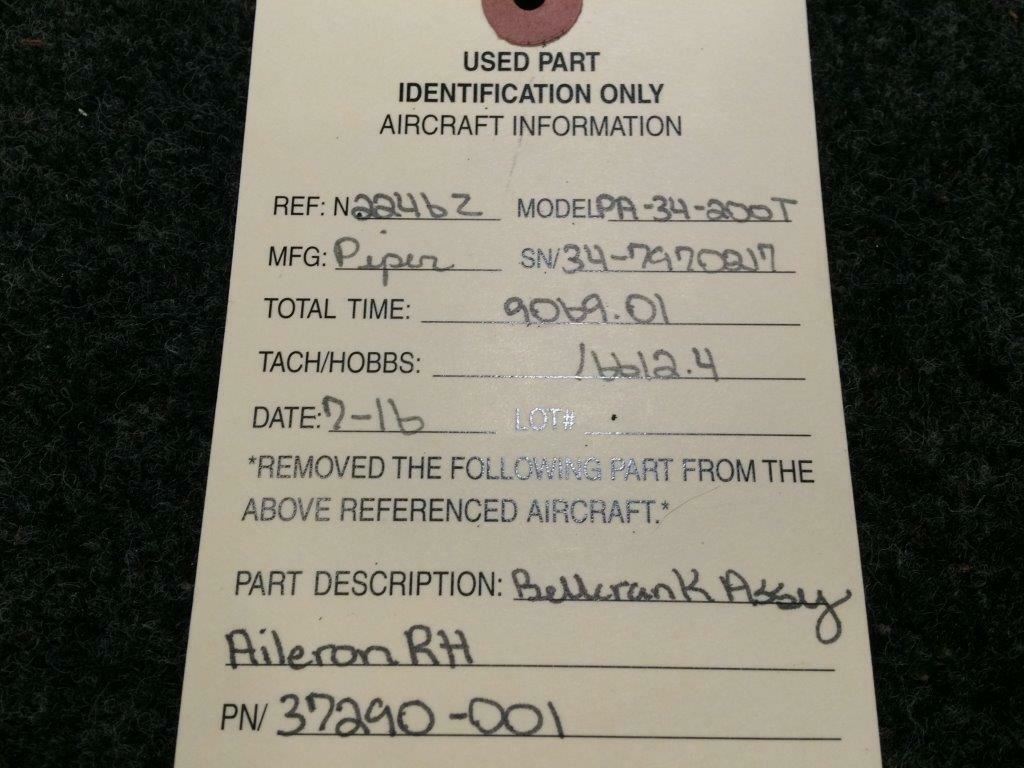 USED PART
IDENTIFICATION ONLY
AIRCRAFT INFORMATION
REF: N2246Z MODEL PA-34-200T
MFG: Piper SN/ 34-7970217
TOTAL TIME: 9069.01
TACH/HOBBS: 16612.4
DATE: 7-16 LOT#
*REMOVED THE FOLLOWING PART FROM THE
ABOVE REFERENCED AIRCRAFT.*
PART DESCRIPTION: Bellcrank Assy
Aileron RH
PN/ 37290-001